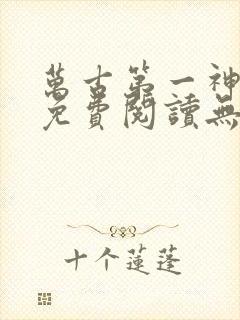 萬古第一神
免費閱讀無
十个蓮蓬